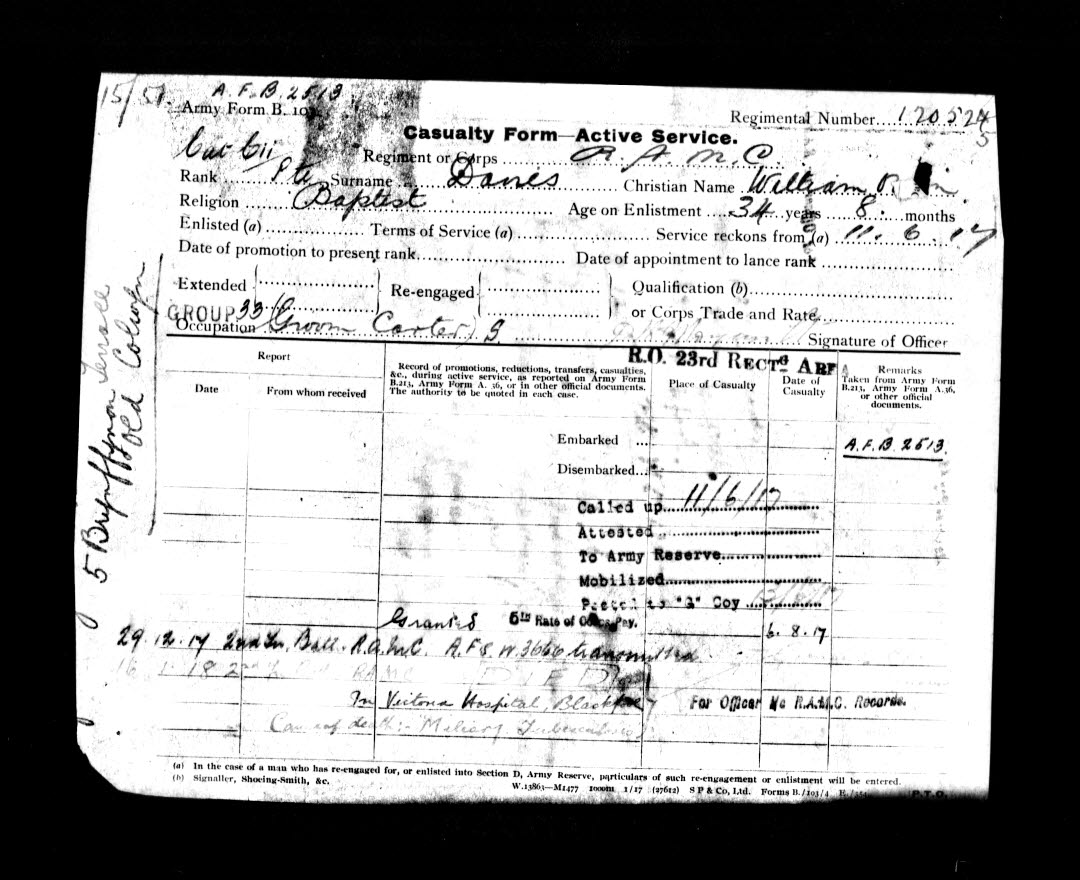 15/
A.F.B. 2513
Army Form B. 103.
Regimental Number 120524
5
Casualty Form—Active Service.
Cat Cii
Regiment or Corps R.A.M.C.
Rank Pte Surname Davies Christian Name William
Religion Baptist Age on Enlistment 34 years 8 months
Enlisted (a) Terms of Service (a) Service reckons from (a) 11.6.17
Date of promotion to present rank Date of appointment to lance rank
Extended Re-engaged Qualification (b)
GROUP 33 or Corps Trade and Rate
Occupation Groom Carter Signature of Officer
R.O. 23rd RECTG
Report
Date
From whom received
Record of promotions, reductions, transfers, casualties, &c., during active service, as reported on Army Form B.213, Army Form A. 36, or in other official documents. The authority to be quoted in each case.
Place of Casualty
Date of Casualty
Remarks
Taken from Army Form B.213, Army Form A.36, or other official documents.
Embarked
A.F.B. 2513.
Disembarked
Called up 11/6/17
Attested
To Army Reserve
Mobilized
Posted to "G" Coy
Granted 6th Rate of Pay. 6.8.17
29.12.17 2nd Ln. Batt. R.A.M.C. A.F.S. W.3666 transmitted
16.1.18 2nd RAMC DIED
In Victoria Hospital, Blackpool
For Officer i/c R.A.M.C. Records.
Cause of death:- Miliary Tuberculosis
5 Old Colwyn
(a) In the case of a man who has re-engaged for, or enlisted into Section D, Army Reserve, particulars of such re-engagement or enlistment will be entered.
(b) Signaller, Shoeing-Smith, &c.
W.13863—M1477 1000m 1/17 (27612) S P & Co., Ltd. Forms B./103/4
P.T.O.